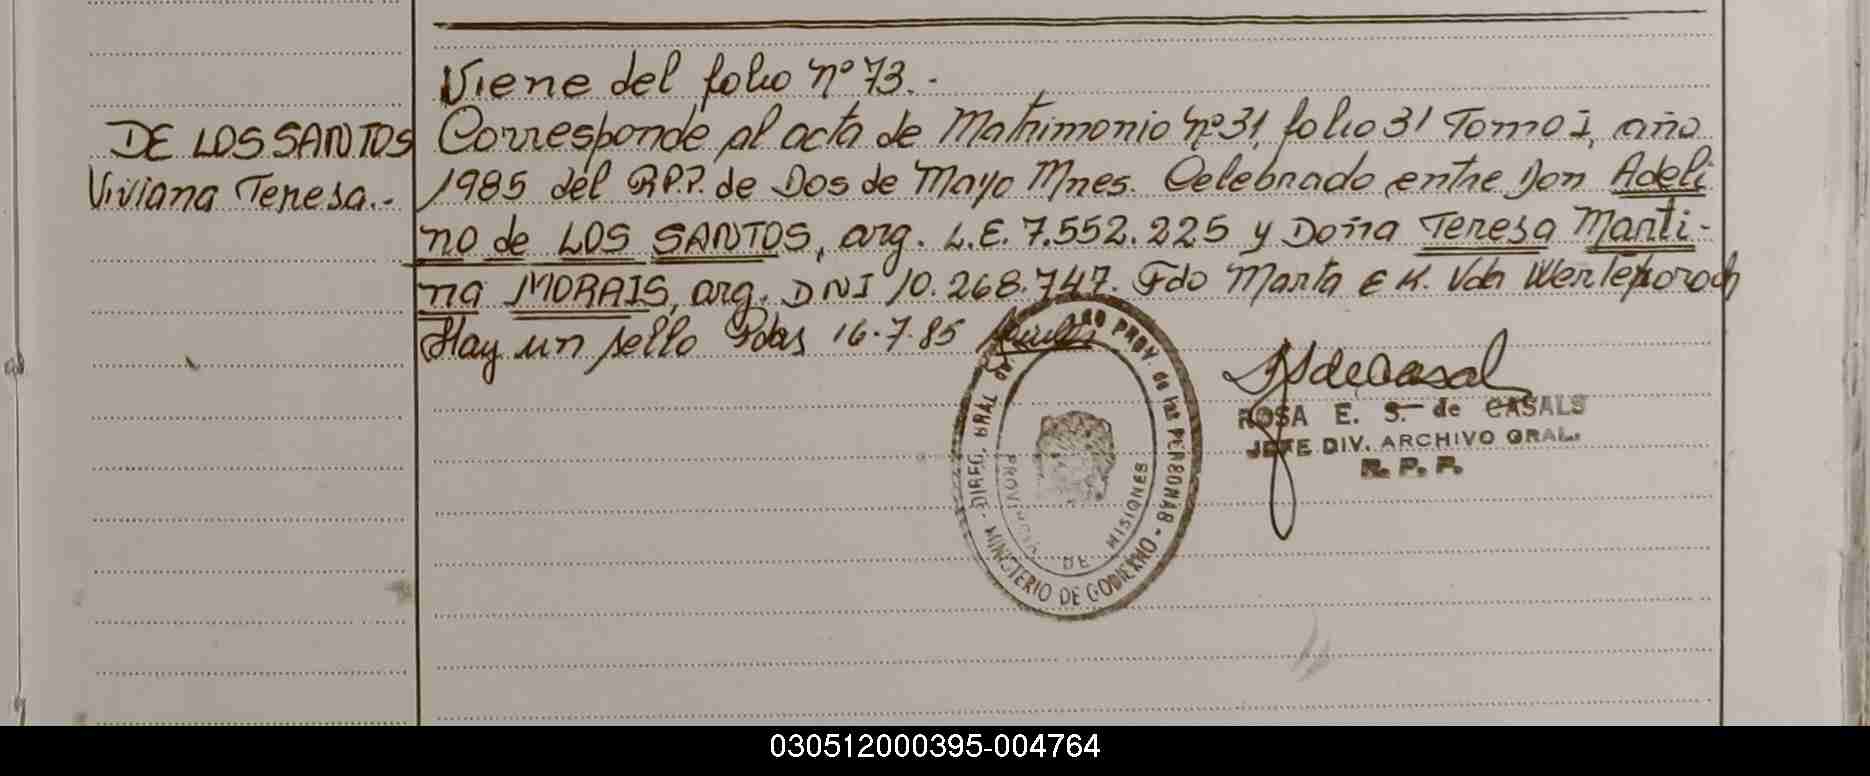 Viene del folio nº 73.-
DE LOS SANTOS
Viviana Teresa.-
Corresponde al acta de Matrimonio nº 31, folio 31 Tomo I, año
1985 del R.P.P. de Dos de Mayo Mnes. Celebrado entre Don Adeli
no de LOS SANTOS, arg. L.E. 7.552.225 y Doña Teresa Marti-
na MORAIS, arg. DNI 10.268.747. Fdo Marta E K. Vda
Hay un sello Pdas 16-7-85
DIREC. GRAL PROV. de las PERSONAS
MINISTERIO DE GOBIERNO
PROVINCIA DE MISIONES
ROSA E. S. de CASALS
JEFE DIV. ARCHIVO GRAL.
R. P. P.
030512000395-004764